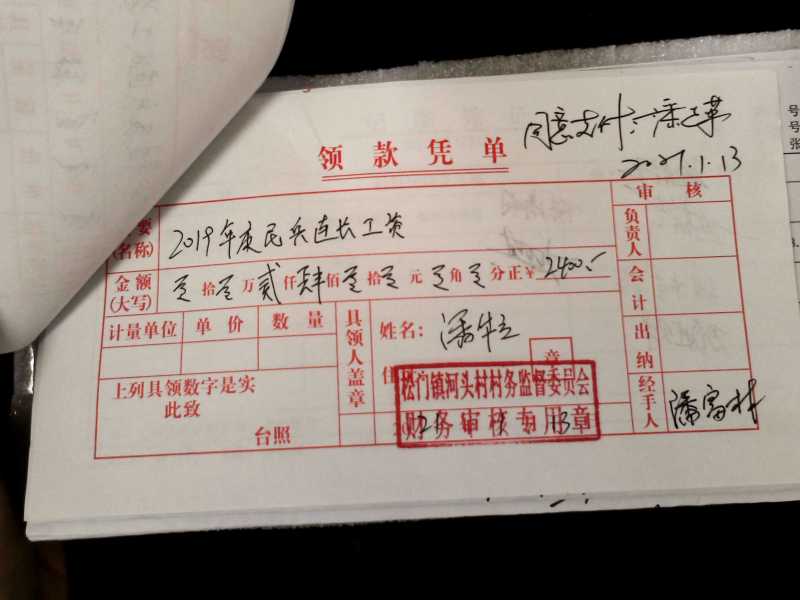 领款凭单
同意支付
2021.1.13
审核
要
(名称)
2019年度民兵连长工资
负责人
金额
(大写)
零拾零万贰仟肆佰零拾零元零角零分正¥2400.-
会计
计量单位 单价 数量
具领人盖章
姓名:潘
章
住
出纳
上列具领数字是实
此致
台照
松门镇河头村村务监督委员会
财务审核专用章
经手人
潘富林
号
号
张